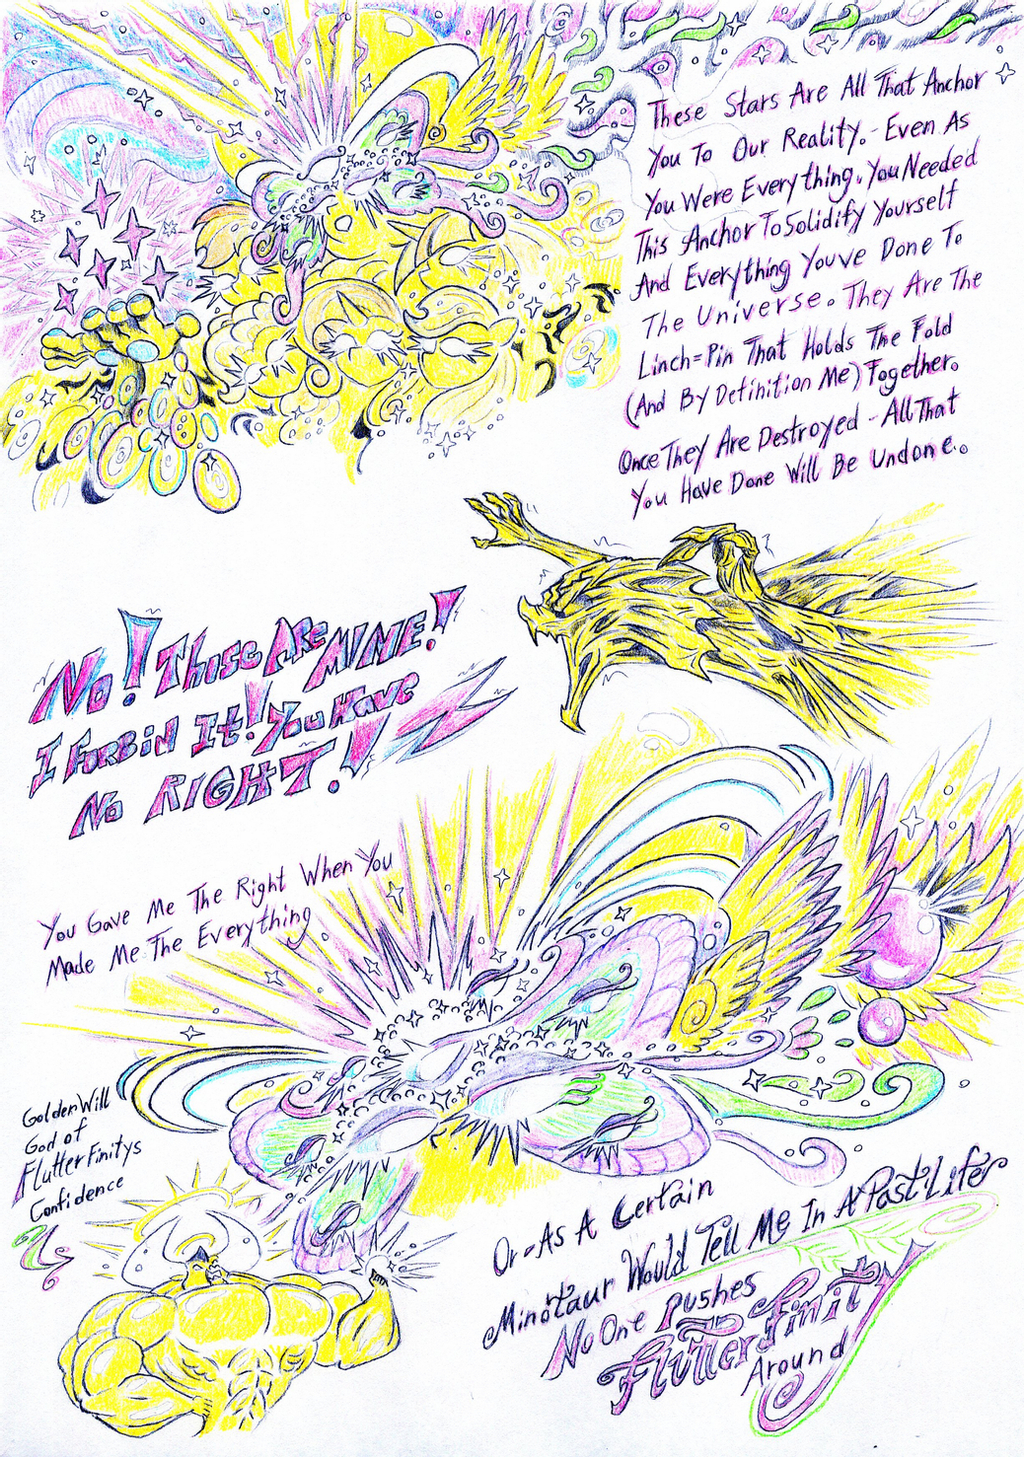 These Stars Are All That Anchor
You To Our Reality.- Even As
You Were Everything. You Needed
This Anchor To Solidify Yourself
And Everything Youve Done To
The Universe. They Are The
Linch=Pin That Holds The Fold
(And By Definition Me) Together.
Once They Are Destroyed - All That
You Have Done Will Be Undone.
No! These Are MINE!
I Forbid It! You Have
No RIGHT!
You Gave Me The Right When You
Made Me The Everything
Golden Will
God of
FlutterFinitys
Confidence
Or-As A Certain
Minotaur Would Tell Me In A Past Life
No One Pushes
FlutterFinity
Around